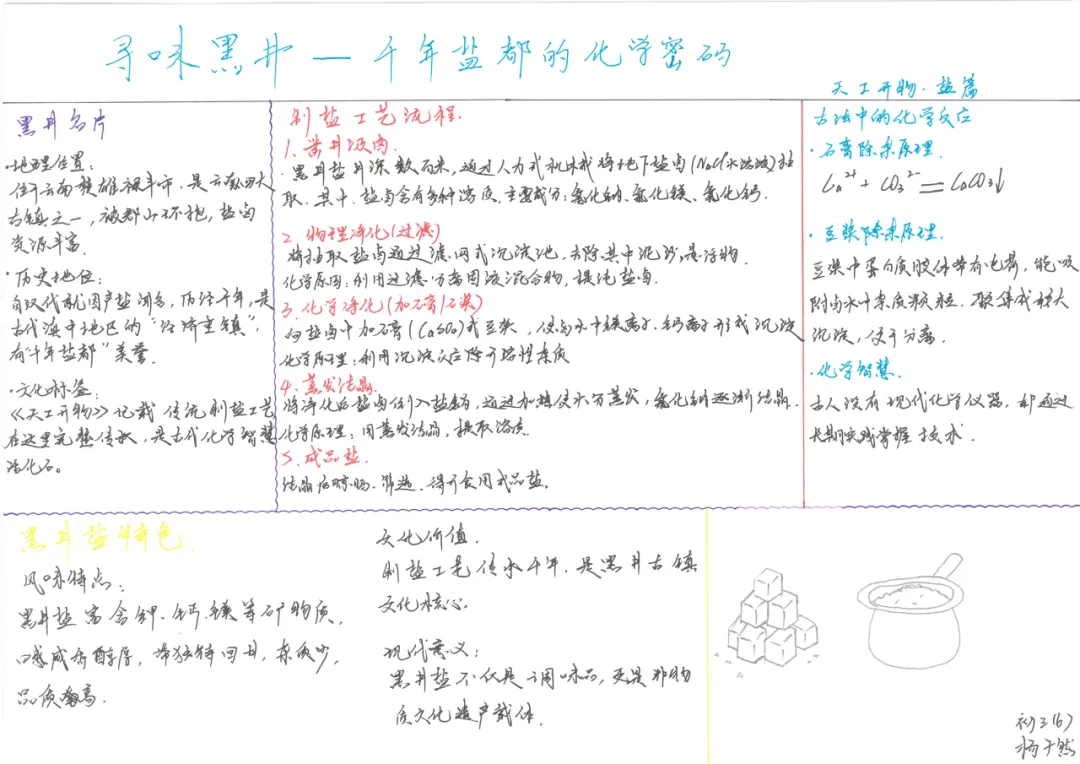 寻味黑井 — 千年盐都的化学密码
天工开物·盐篇
黑井名片
·地理位置:
位于云南楚雄禄丰市,是云南四大
古镇之一,被群山环抱,盐卤
资源丰富.
·历史地位:
自汉代就因产盐闻名,历经千年,是
古代滇中地区的“经济重镇”,
有“千年盐都”美誉.
·文化标签:
《天工开物》记载传统制盐工艺
在这里完整传承,是古代化学智慧
活化石。
制盐工艺流程.
1.凿井汲卤.
·黑井盐井深数百米,通过人力或机械将地下盐卤(NaCl水溶液)抽
取.其中.盐卤含有多种溶质.主要成分:氯化钠.氯化镁.氯化钙.
2.物理净化(过滤)
将抽取盐卤通过滤网或沉淀池,去除其中泥沙,悬浮物.
化学原因:利用过滤.分离固液混合物,提纯盐卤.
3.化学净化(加石膏/豆浆)
向盐卤中加石膏(CaSO₄)或豆浆,使卤水中镁离子.钙离子形成沉淀
化学原理:利用沉淀反应除可溶性杂质
4.蒸发结晶.
将净化后盐卤倒入盐锅,通过加热使水分蒸发,氯化钠逐渐结晶.
化学原理:用蒸发结晶,提取溶质.
5.成品盐.
结晶后晾晒.筛选.得可食用成品盐.
古法中的化学反应
·石膏除杂原理.
Ca²⁺ + CO₃²⁻ = CaCO₃↓
·豆浆除杂原理.
豆浆中蛋白质胶体带有电荷,能吸
附卤水中杂质颗粒.聚集成较大
沉淀,便于分离.
·化学智慧.
古人没有现代化学仪器,却通过
长期实践掌握技术.
黑井盐特色.
风味特点:
黑井盐富含钾.钙.镁等矿物质,
口感咸香醇厚,带独特回甘,杂质少,
品质高.
文化价值.
制盐工艺传承千年.是黑井古镇
文化核心.
现代意义:
黑井盐不仅是调味品,更是非物
质文化遗产载体.
初三(6)
杨于然